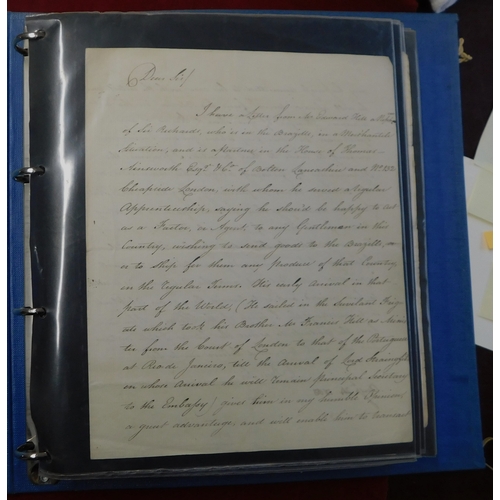 Dear Sir/
I have a Letter from Mr Edward Hill a Nephew
of Sir Richards, who is in the Brazills, in a Merchantile
Situation, and is a Partner in the House of Thomas
Ainsworth Esqr. & Co. of Bolton Lancashire and No. 121
Cheapside London, with whom he served a regular
Apprenticeship, saying he should be happy to act
as a Factor, or Agent, to any Gentleman in this
Country, wishing to send goods to the Brazills, or
to Ship for them any Produce of that Country
in the regular Terms. His early arrival in that
part of the World, (He sailed in the Frig
ate which took his Brother Mr Francis Hill as Minis
ter from the Court of London to that of the Portuguese
at Rio de Janeiro, till the Arrival of Lord Strangford
on whose Arrival he will remain principal Secretary
to the Embassy) gives him in my humble Opinion,
a great advantage, and will enable him to transact